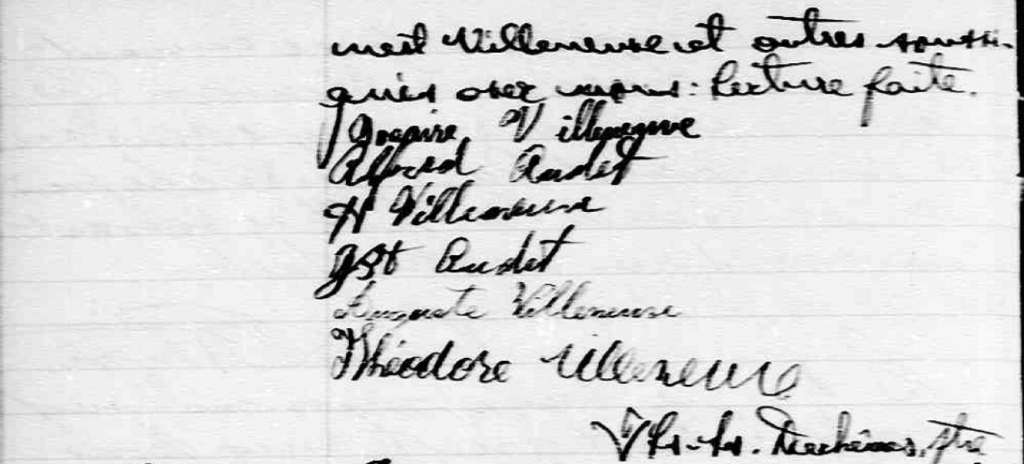 Villeneuve et autres soussi-
gnés avec nous. Lecture faite.
Villeneuve
Alfred Audet
H Villeneuve
JBt Audet
Auguste Villeneuve
Théodore Villeneuve
ptre